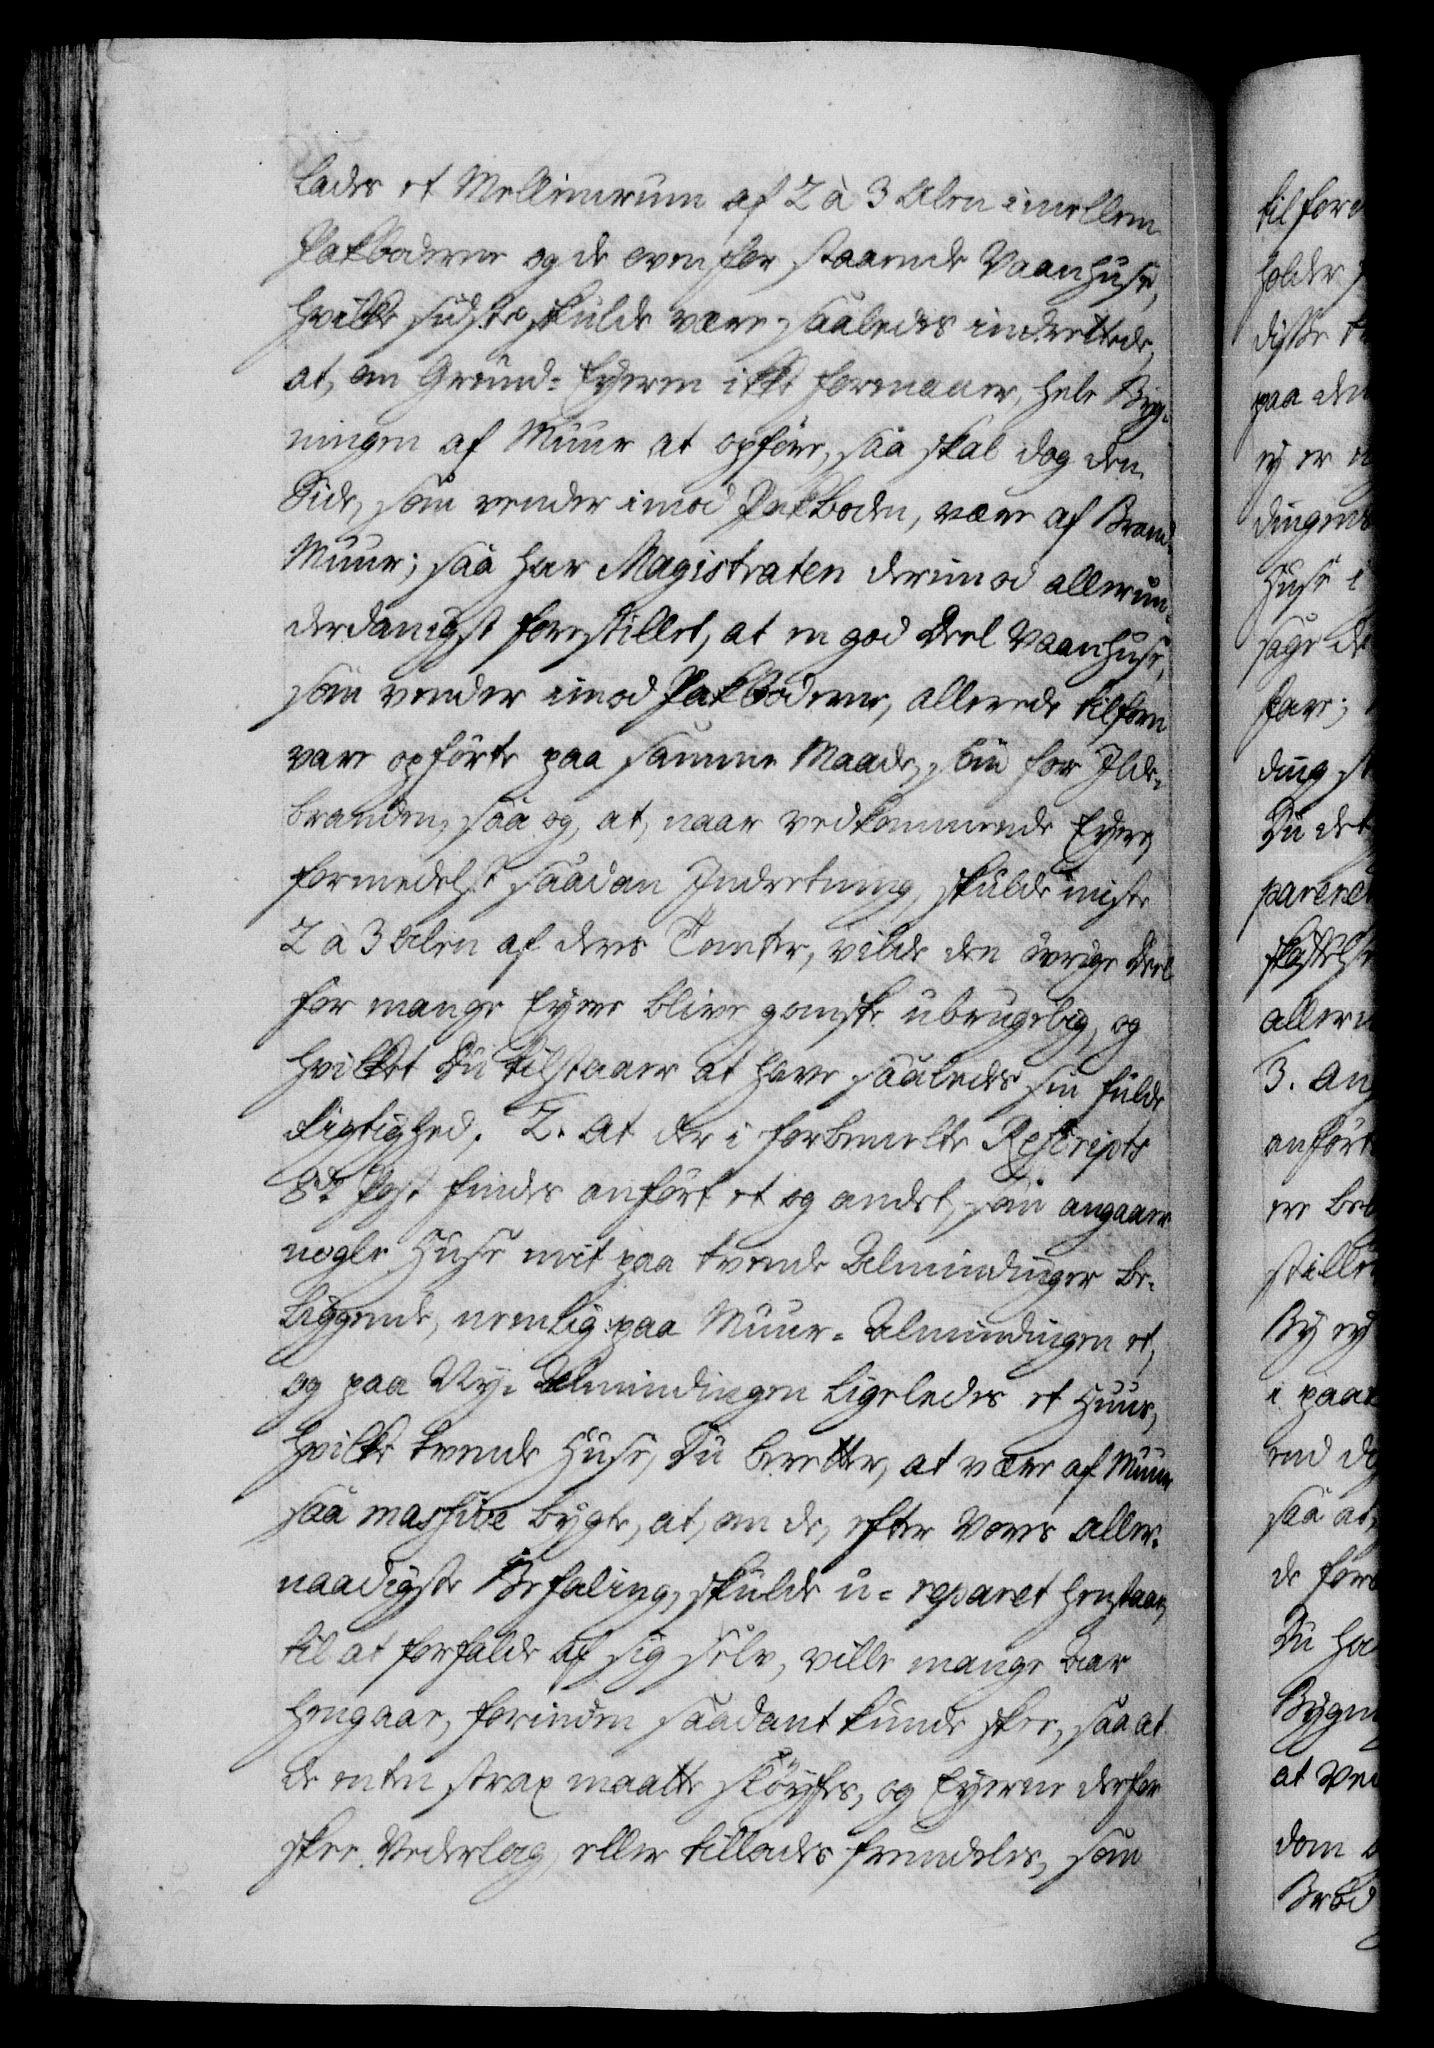 lades et Mellemrum af 2 à 3 Alen imellem
Pakboderne og de ovenfor staaende Vaanhuse,
hvilke sidste skulde være saaledes indrettede,
at, om Grund-Eyeren ikke formaaer, hele Byg-
ningen af Muur at opføre, saa skal dog den
Side, som vender imod Pakboden, være af Brand-
Muur; saa har Magistraten derimod allerun-
derdanigst forestillet, at en god Deel Vaanhuse,
som vender imod PakBoderne, allerede tilforn
vare opførte paa samme Maade, som for Ilde-
branden, saa og, at, naar vedkommende Eyere,
formedelst saadan Indretning, skulde miste
2 à 3 Alen af deres Tomter, vilde den øvrige Deel
for mange Eyere blive ganske ubrugelig, og
hvilket Du tilstaaer at have saaledes sin fulde
Rigtighed. 2. At der i forbemelte Rescripts
8de Post findes anført et og andet, som angaaer
nogle Huse mit paa tvende Almindinger be-
liggende, nemlig paa Muur-Almindingen et,
og paa Ny-Almindingen ligeledes et Huus,
hvilke tvende Huse, Du beretter, at være af Muur
saa massive bygte, at, om de, efter Vores aller-
naadigste Befaling, skulde u-reparet henstaae,
til at forfalde af sig selv, ville mange Aar
hengaae, forinden saadant kunde skee, saa at
de enten strax maatte sløyfes, og Eyerne derfor
skee Vederlag, eller tillades fremdeles, som